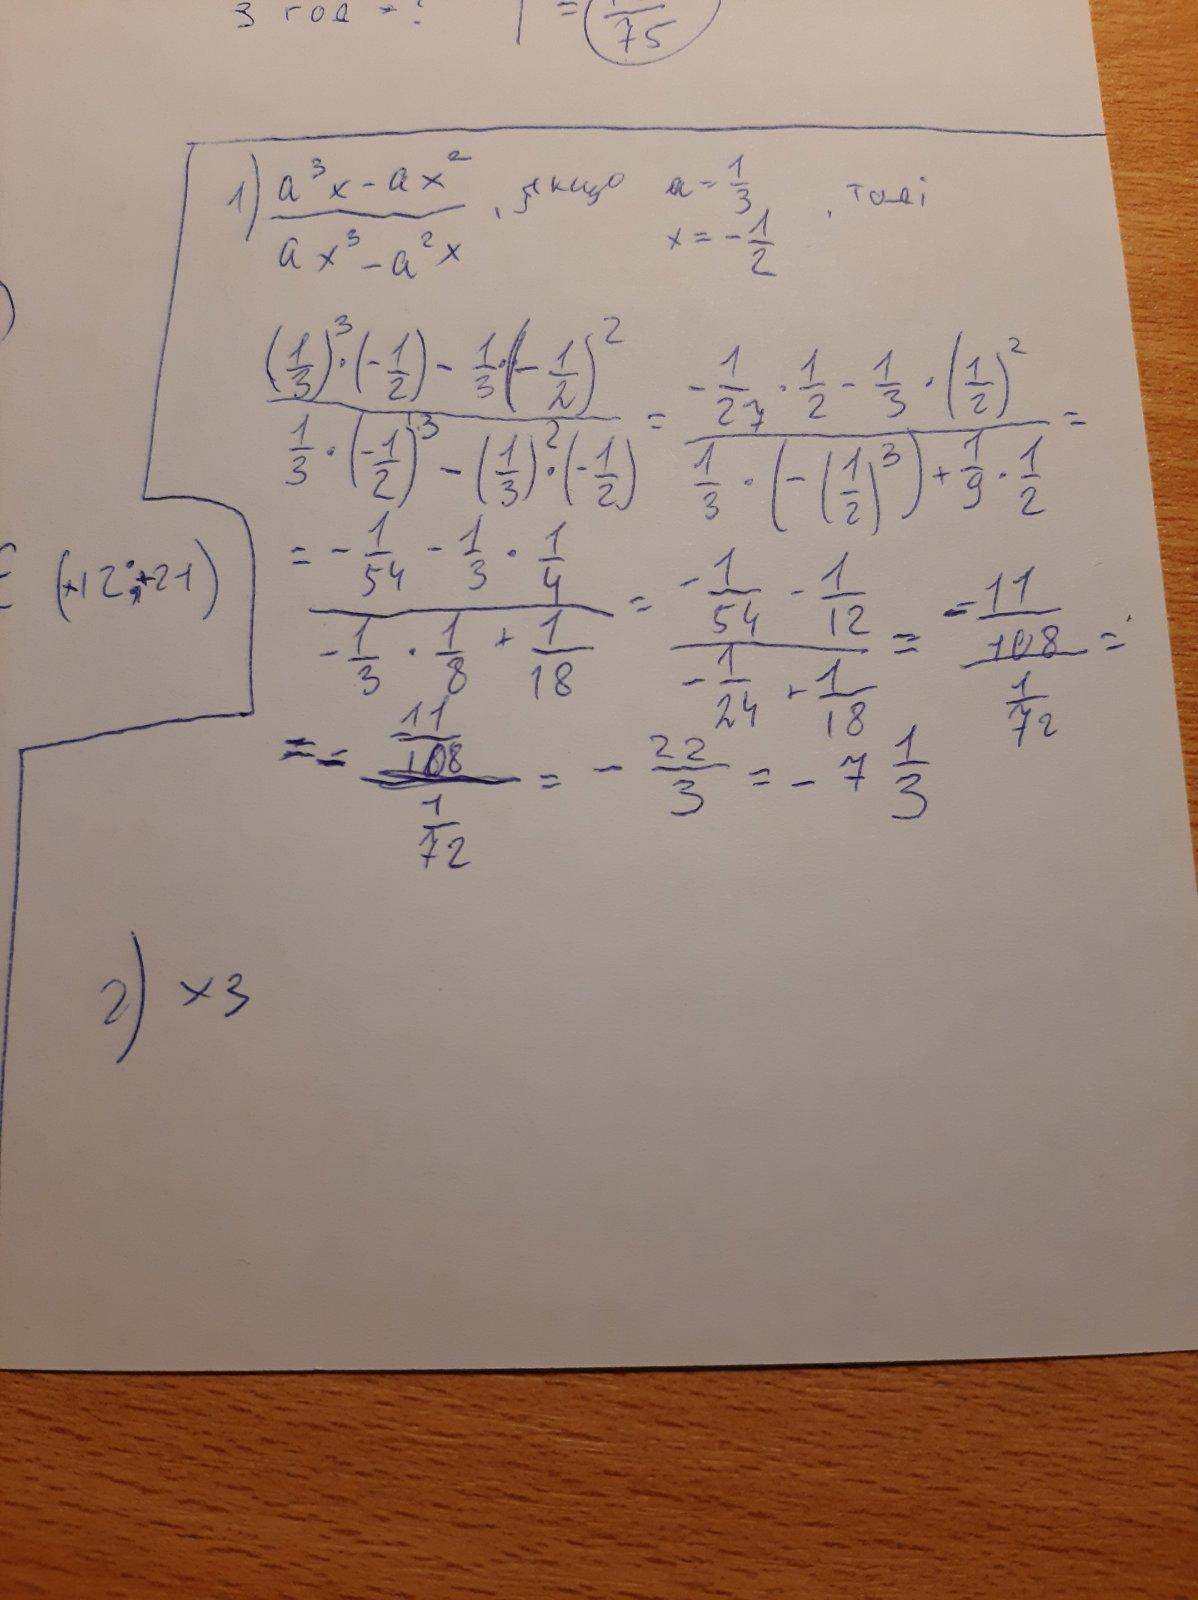 3 год - ?
= 75
1) (a³x - ax²)/(ax³ - a²x), якщо a = 1/3, x = -1/2, тоді
((1/3)³·(-1/2) - 1/3·(-1/2)²)/(1/3·(-1/2)³ - (1/3)²·(-1/2)) = (-1/27·1/2 - 1/3·(1/2)²)/(1/3·(-(1/2)³) + 1/9·1/2) =
= (-1/54 - 1/3·1/4)/(-1/3·1/8 + 1/18) = (-1/54 - 1/12)/(-1/24 + 1/18) = (-11/108)/(1/72) =
(+12;+21)
= -(11/108)/(1/72) = -22/3 = -7 1/3
2) x3